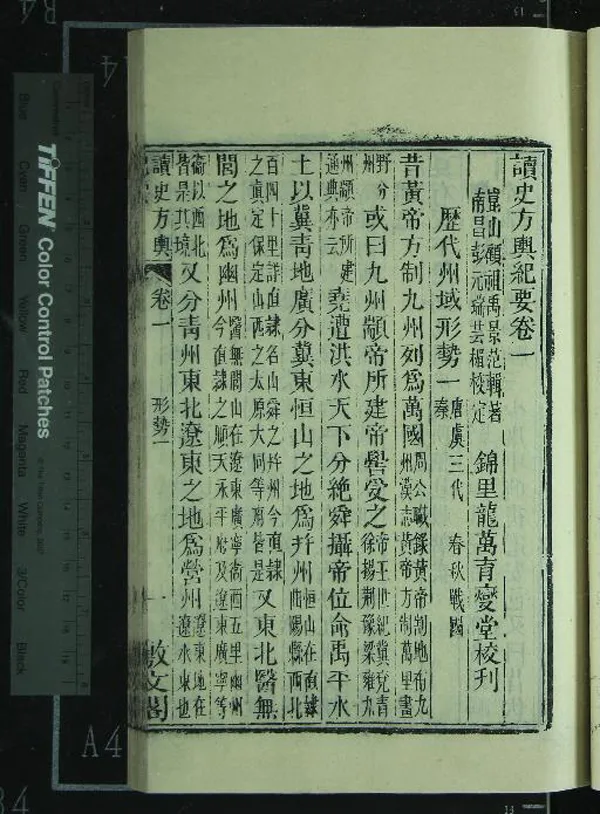 讀史方輿紀要卷一
崑山顧祖禹景范輯著
南昌彭元瑞芸楣校定
錦里龍萬育燮堂校刊
歷代州域形勢一
唐虞三代 春秋戰國
秦
昔黃帝方制九州列爲萬國
周公職錄黃帝割地布九
州漢志黃帝方制萬里畫
野分
州
或曰九州顓帝所建帝嚳受之
帝王世紀冀兗青
徐揚荆豫梁雍九
州顓帝所建
通典亦云
堯遭洪水天下分絕舜攝帝位命禹平水
土以冀青地廣分冀東恒山之地爲幷州
恒山在直隸
曲陽縣西北
百四十里詳直隸名山舜之幷州今直隸
之真定保定山西之太原大同等府皆是
又東北醫無
閭之地爲幽州
醫無閭山在遼東廣寧衞西五里幽州
今直隸之順天永平府及遼東廣寧等
衞以西北
皆是其境
又分青州東北遼東之地爲營州
遼東地在
遼水東也
讀史方輿
卷一
形勢一
一
敷文閣
TIFFEN Color Control Patches
Blue
Cyan
Green
Yellow
Red
Magenta
White
3/Color
Black
A4